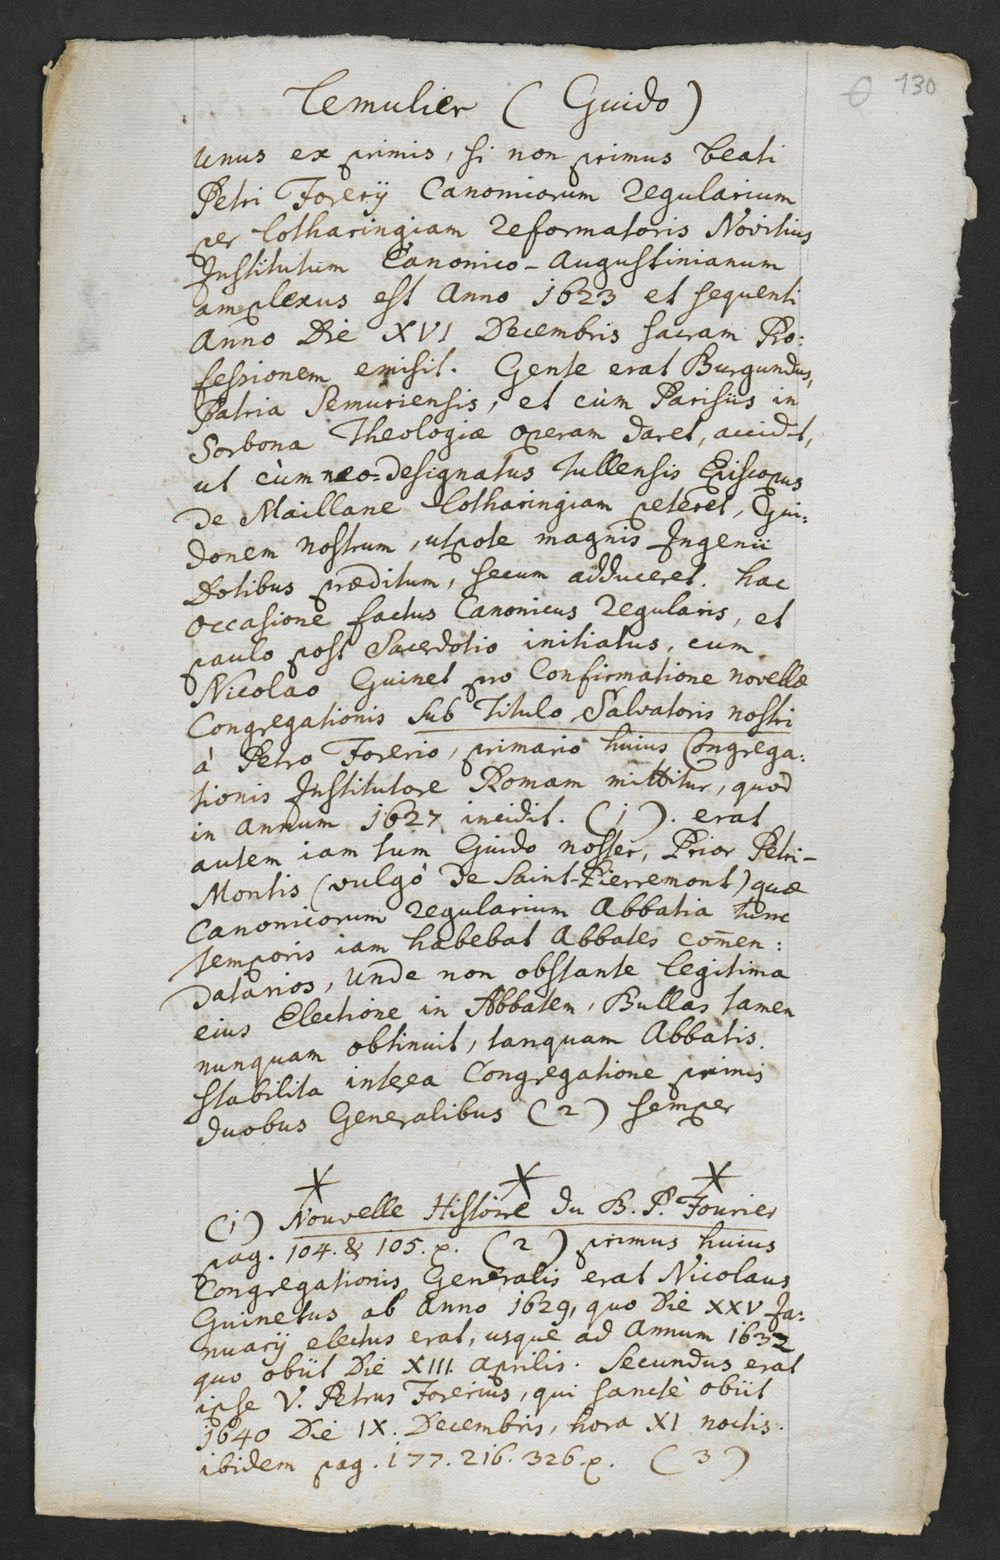 130
Lemulier ( Guido )
Unus ex primis, si non primus beati
Petri Forerij Canonicorum Regularium
per Lotharingiam Reformatoris Novitius
Institutum Canonico-Augustinianum
amplexus est Anno 1623 et sequenti
Anno Die XVI Decembris sacram Pro:
fessionem emisit. Gente erat Burgundus,
Patria Semuriensis, et cùm Parisiis in
Sorbona Theologiæ operam daret, accidit,
ut cùm neo-designatus Tullensis Episcopus
De Maillane Lotharingiam peteret, Gui:
donem nostrum, utpote magnis Ingenii
Dotibus præditum, secum adduceret. hac
occasione factus Canonicus Regularis, et
paulo post Sacerdotio initiatus, cum
Nicolao Guinet pro Confirmatione novellæ
Congregationis sub Titulo Salvatoris nostri
à Petro Forerio, primario huius Congrega:
tionis Institutore Romam mittitur, quod
in annum 1627 incidit. (1). erat
autem iam tum Guido noster, Prior Petri-
Montis (vulgò de Saint-Pierremont) quæ
Canonicorum Regularium Abbatia tunc
temporis iam habebat Abbates comen:
datarios, Unde non obstante legitima
eius Electione in Abbatem, Bullas tamen
nunquam obtinuit, tanquam Abbatis.
stabilita interea Congregatione primis
duobus Generalibus (2) semper
(1) Nouvelle Histoire du B. P. Fourier
pag. 104. & 105. p. (2) primus huius
Congregationis Generalis erat Nicolaus
Guinetus ab Anno 1629, quo Die XXV Ja:
nuarij electus erat, usque ad Annum 1632
quo obiit Die XIII Aprilis. Secundus erat
ipse V. Petrus Forerius, qui sanctè obiit
1640 Die IX. Decembris, hora XI noctis.
ibidem pag. 177. 216. 326. p. (3)